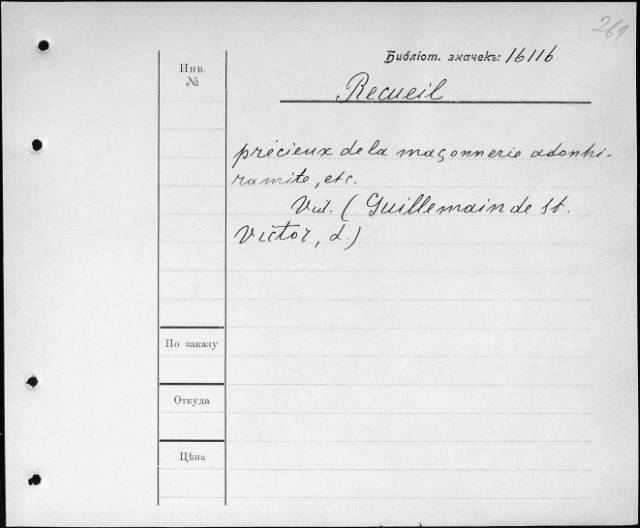 261
Библіот. значекъ: 16116
Инв.
№
Recueil
précieux de la maçonnerie adonhi-
ramite, etc.
Vid. (Guillemain de St.
Victor, L.)
По заказу
Откуда
Цѣна